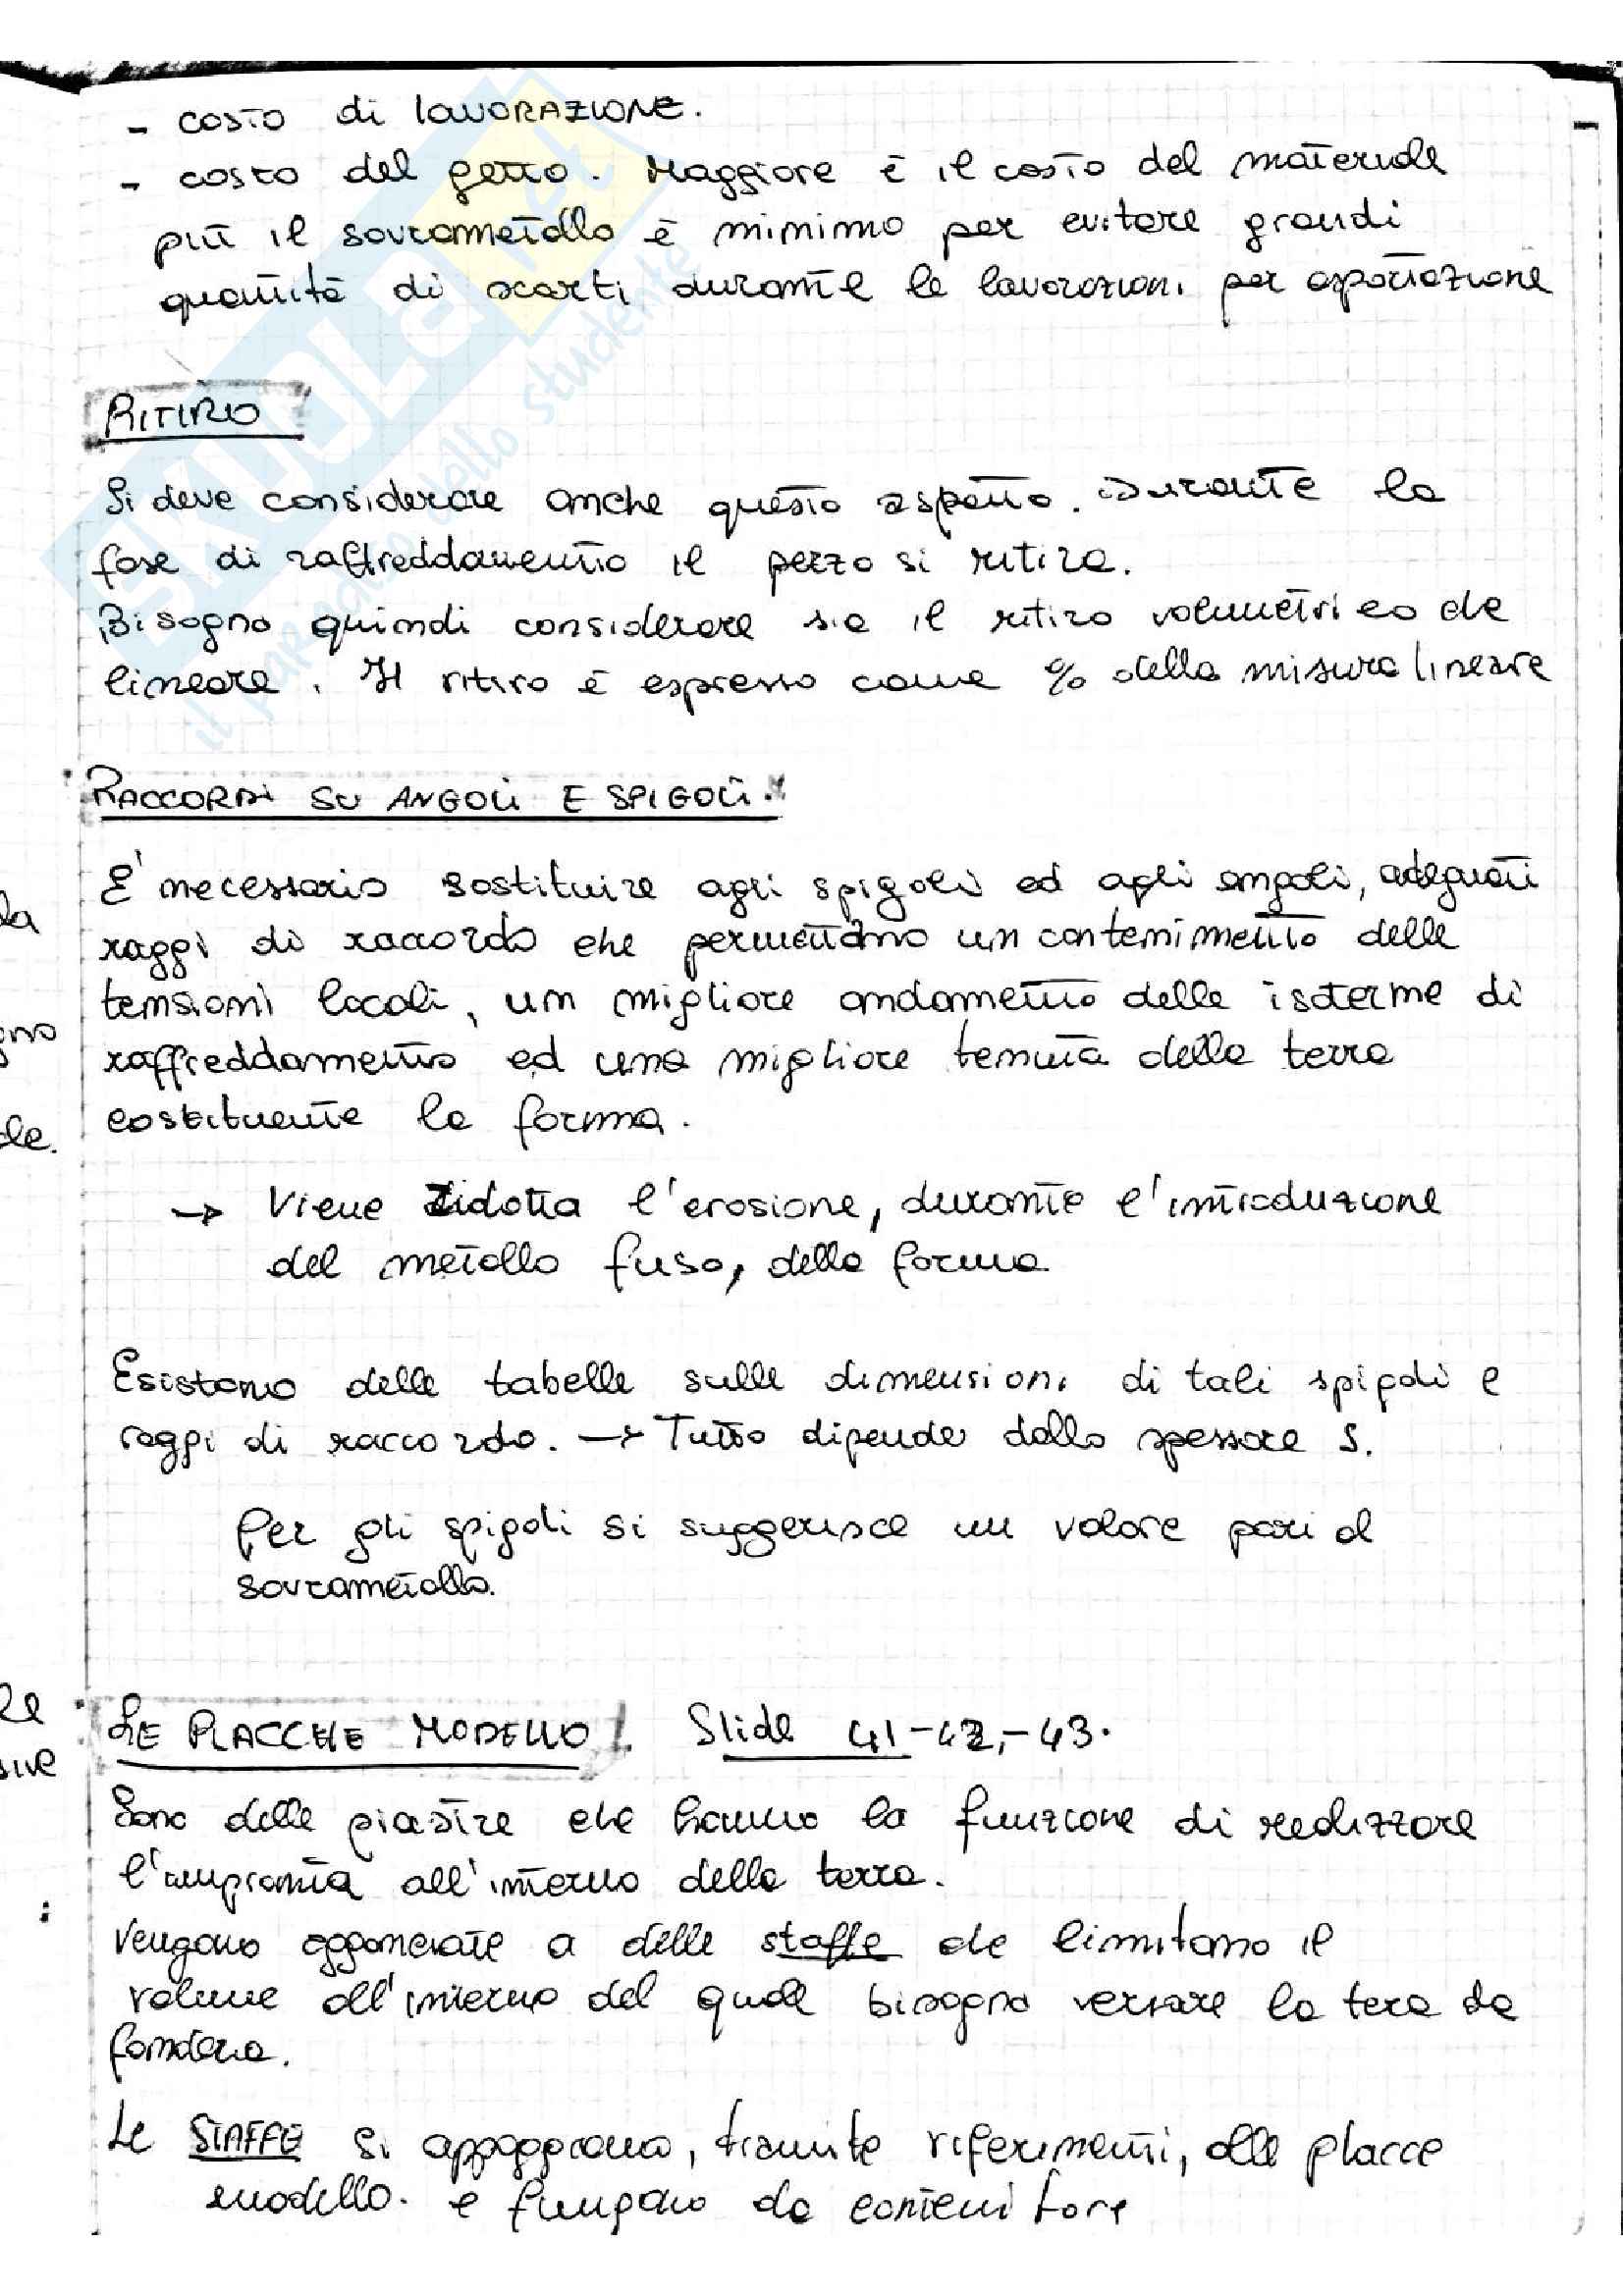 - costo di lavorazione.
- costo del getto. Maggiore è il costo del materiale
più il sovrametallo è minimo per evitare grandi
quantità di scarti durante le lavorazioni per asportazione
RITIRO
Si deve considerare anche questo aspetto. Durante la
fase di raffreddamento il pezzo si ritira.
Bisogna quindi considerare sia il ritiro volumetrico che
lineare. Il ritiro è espresso come % della misura lineare
RACCORDI SU ANGOLI E SPIGOLI.
E' necessario sostituire agli spigoli ed agli angoli, adeguati
raggi di raccordo che permettano un contenimento delle
tensioni locali, un migliore andamento delle isoterme di
raffreddamento ed una migliore tenuta della terra
costituente la forma.
→ Viene ridotta l'erosione, durante l'introduzione
del metallo fuso, della forma.
Esistono delle tabelle sulle dimensioni di tali spigoli e
raggi di raccordo. → Tutto dipende dallo spessore S.
Per gli spigoli si suggerisce un valore pari al
sovrametallo.
LE PLACCHE MODELLO! Slide 41-42,-43.
Sono delle piastre che hanno la funzione di realizzare
l'impronta all'interno della terra.
Vengono agganciate a delle staffe che limitano il
volume all'interno del quale bisogna versare la tera da
fonderia.
Le STAFFE si appoggiano, tramite riferimenti, alle placce
modello. e fungano da contenitore
SKUOLA.net
il paradiso dello studente